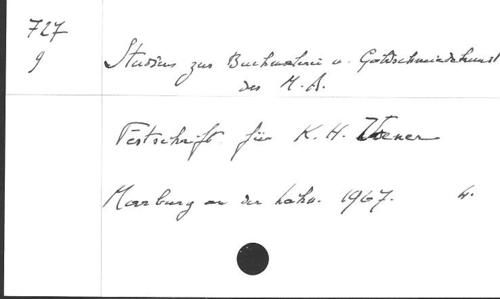 727
g
Studien zur Buchmalerei u. Goldschmiedekunst
des M.A.
Festschrift für K. H. Usener
Marburg an der Lahn. 1967. 4.